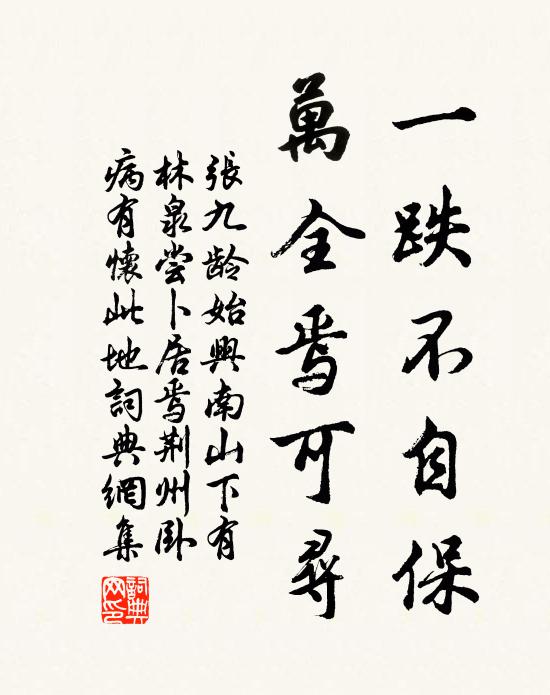 一跌不自保
萬全焉可尋
張九龄始興南山下有
林泉嘗卜居焉荆州卧
病有懷此地詞典網集
詞典
网印